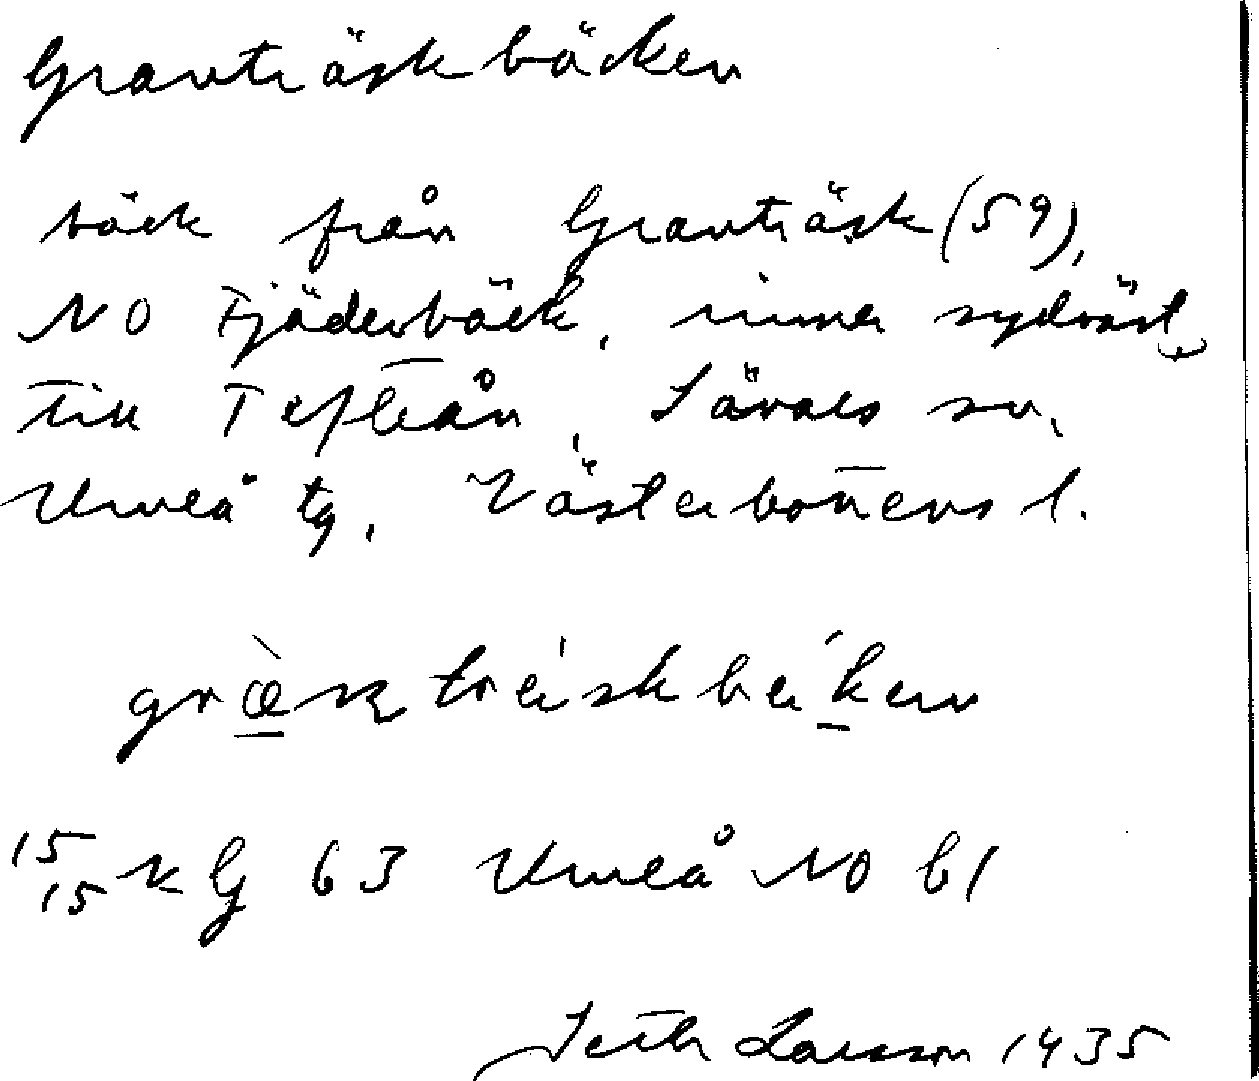 Granträskbäcken
bäck från Granträsk (59),
NO Fjäderbäck, rinner sydväst
till Tefteån, Sävars sn,
Umeå tg, Västerbottens l.
15/15 kG 63 Umeå NO bl
Seth Larsson 1935